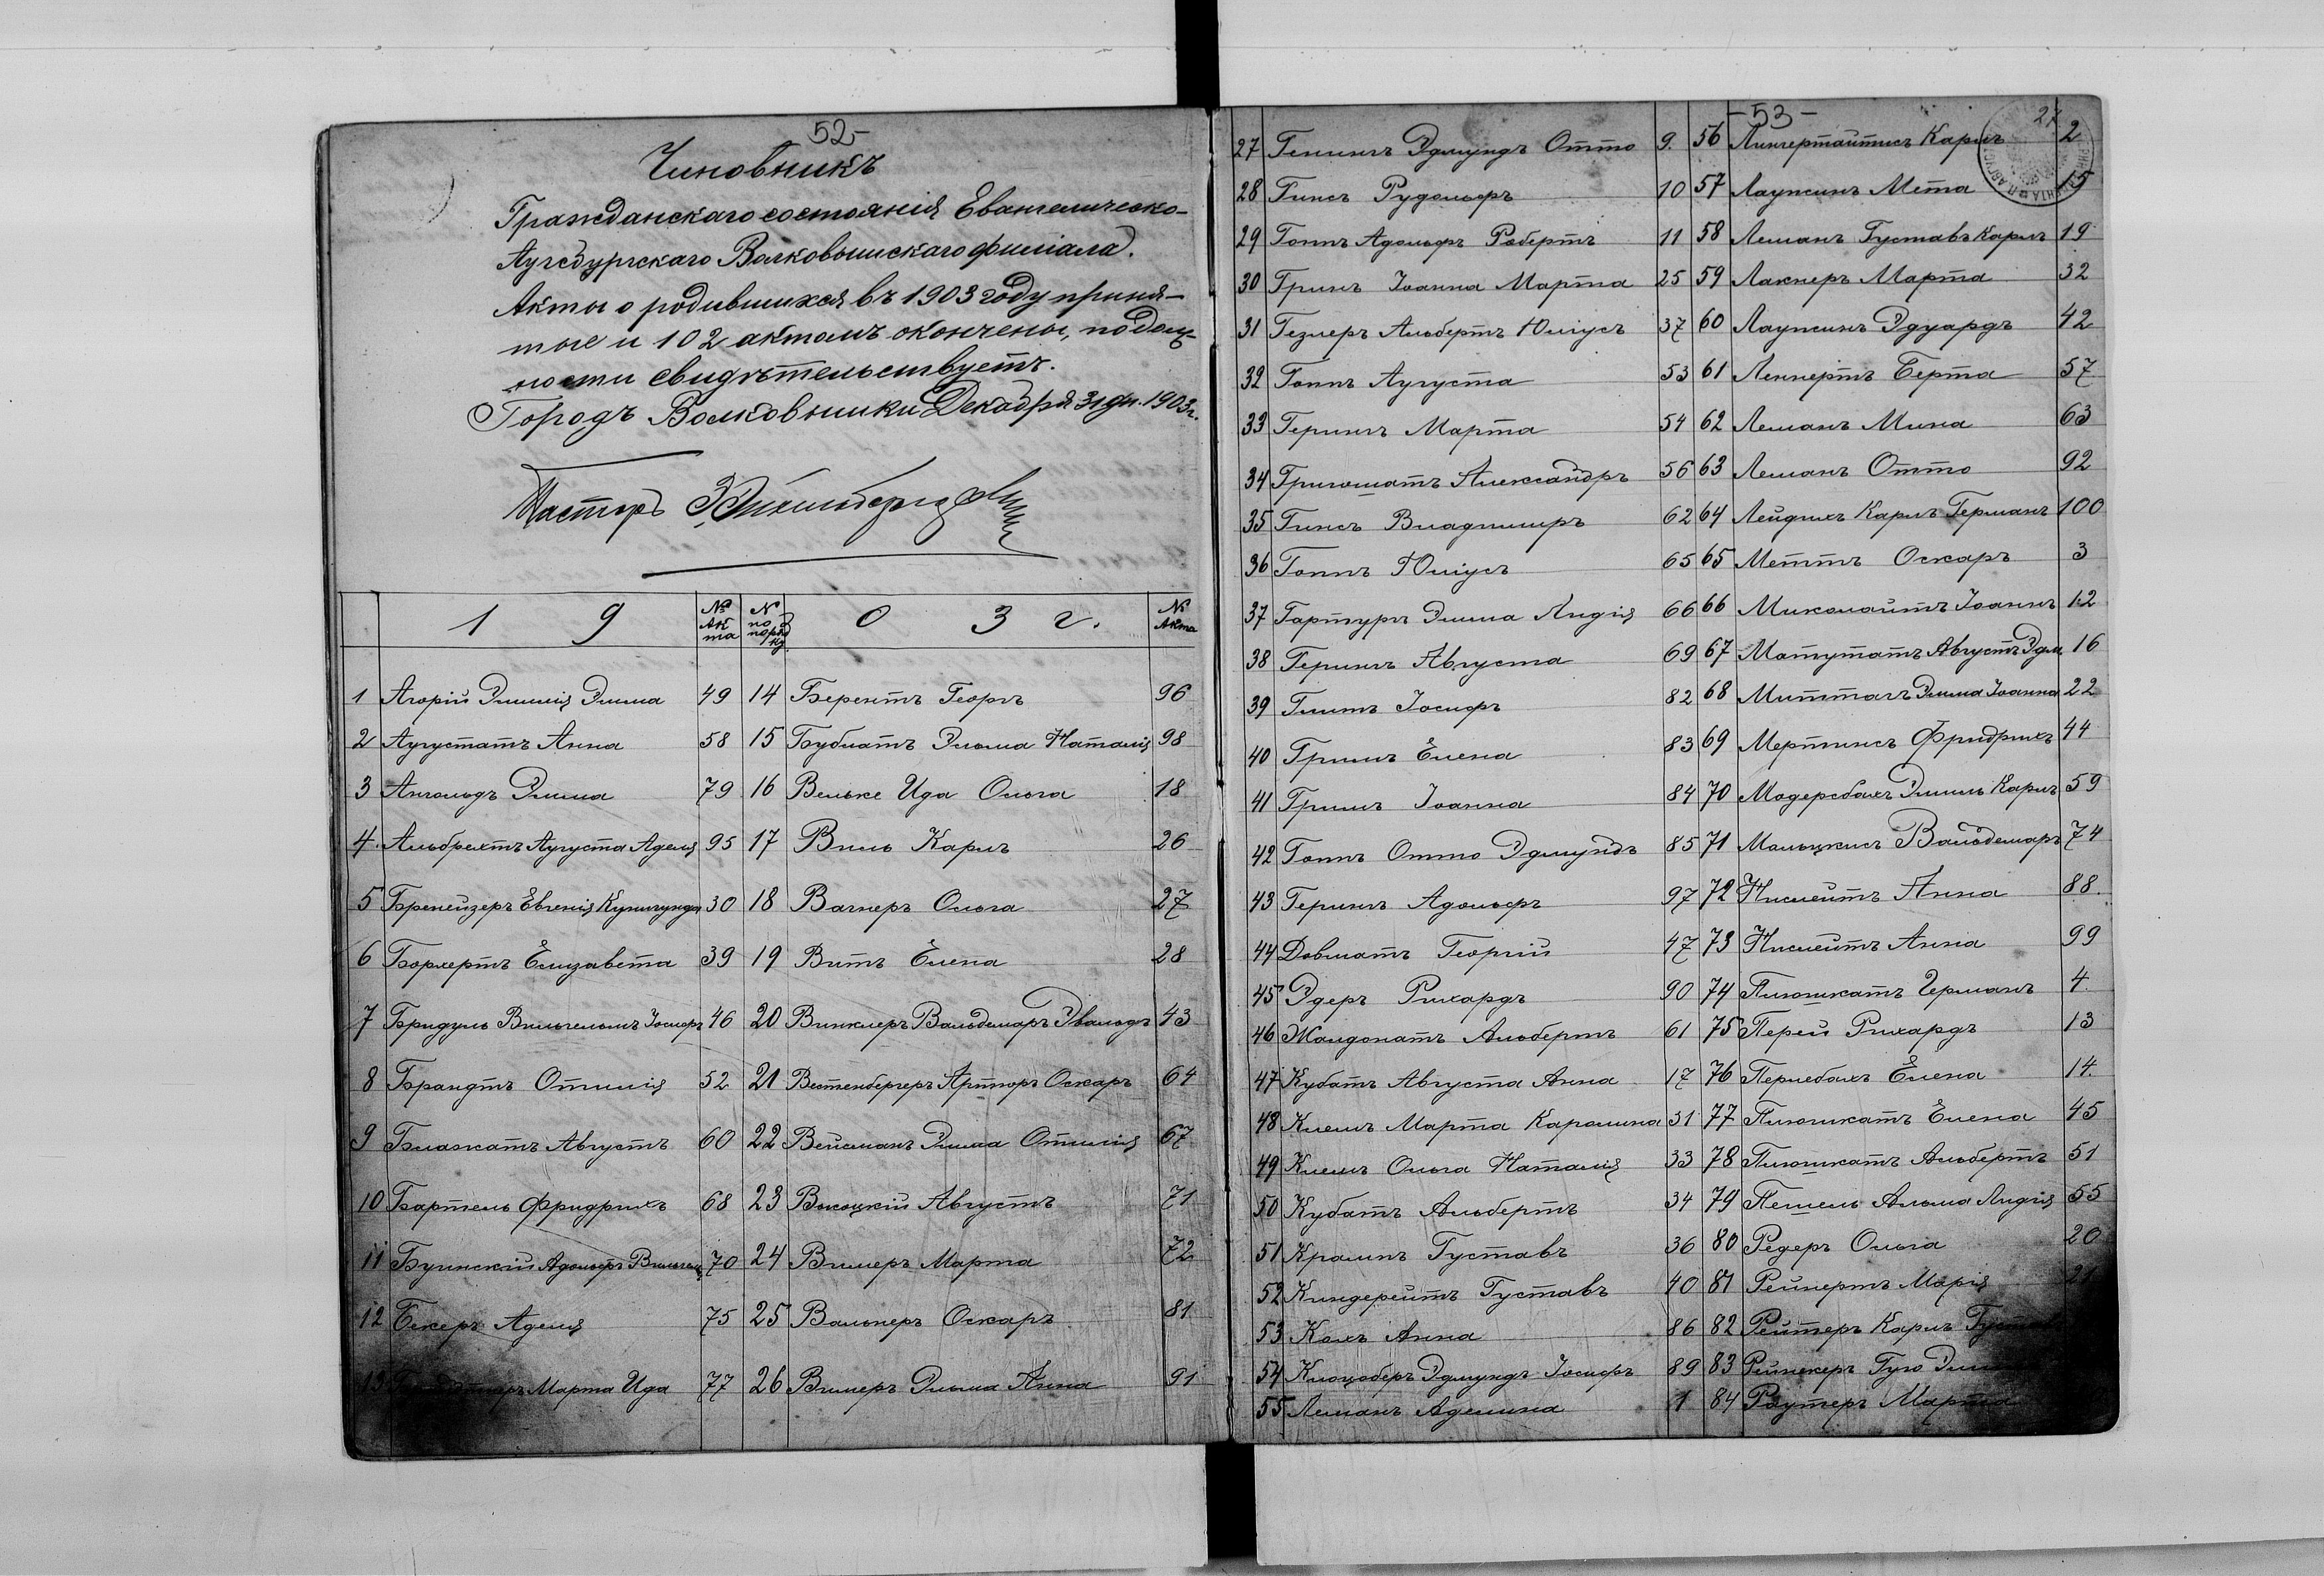 52-
Чиновникъ
Гражданскаго состоянія Евангелическо-
Аугсбургскаго Волковышскаго филіала.
Акты о родившихся въ 1903 году приня-
тые и 102 актомъ окончены, подлин-
ности свидѣтельствуетъ.
Городъ Волковышки Декабря 31 дн. 1903 г.
Пасторъ
1 9 № Акта № по порядку 0 3 г. № Акта
1 Агорій Эмилія Эмма 49 14 Берентъ Георгъ 96
2 Аугустатъ Анна 58 15 Бублатъ Эльма Наталія 98
3 Ангольдъ Эмма 79 16 Вельке Ида Ольга 18
4 Альбрехтъ Аугуста Аделя 95 17 Виль Карлъ 26
5 Бренейзеръ Евгенія Кунигунда 30 18 Вагнеръ Ольга 27
6 Борхертъ Елизавета 39 19 Витъ Елена 28
7 Бридуль Вильгельмъ Іосифъ 46 20 Винклеръ Вальдемаръ Эвальдъ 43
8 Брандтъ Отилія 52 21 Вестенбергеръ Артторъ Оскаръ 64
9 Блажатъ Августъ 60 22 Вейсманъ Эмма Отилія 67
10 Бартель Фридрихъ 68 23 Высоцкій Августъ 71
11 Буинскій Адольфъ Вильгельмъ 70 24 Вилеръ Марта 72
12 Бекеръ Аделя 75 25 Вальнеръ Оскаръ 81
13 Марта Ида 77 26 Вилеръ Эльма Анна 91
-53-
27
27 Генингъ Эдмундъ Отто 9. 56 Лингертайтисъ Карлъ 2
28 Гинсъ Рудольфъ 10 57 Лаужинъ Мета 15
29 Гоппъ Адольфъ Робертъ 11 58 Леманъ Густавъ Карлъ 19
30 Гринъ Іоанна Марта 25 59 Лакнеръ Марта 32
31 Гезлеръ Альбертъ Юліусъ 37 60 Лаужинъ Эдуардъ 42
32 Гоппъ Аугуста 53 61 Леннертъ Берта 57
33 Герингъ Марта 54 62 Леманъ Мина 63
34 Григошатъ Александръ 56 63 Леманъ Отто 92
35 Гинсъ Владимиръ 62 64 Лейдихъ Карлъ Германъ 100
36 Гоппъ Юліусъ 65 65 Меттъ Оскаръ 3
37 Гартургъ Эмма Лидія 66 66 Миколайтъ Іоаннъ 12
38 Герингъ Августа 69 67 Матутатъ Августъ Эдм. 16
39 Глитъ Іосифъ 82 68 Миттагъ Эмма Іоанна 22
40 Гримъ Елена 83 69 Мертинсъ Фридрихъ 44
41 Гримъ Іоанна 84 70 Модерсбахъ Эмиль Карлъ 59
42 Гоппъ Отто Эдмундъ 85 71 Мольцкисъ Вальдемаръ 74
43 Герингъ Адольфъ 97 72 Нислейтъ Анна 88.
44 Довлатъ Георгій 47 73 Нислейтъ Анна 99
45 Эдеръ Рихардъ 90 74 Плюшкатъ Германъ 4.
46 Жалдонатъ Альбертъ 61 75 Перей Рихардъ 13
47 Кубатъ Августа Анна 17 76 Перлебахъ Елена 14.
48 Клемъ Марта Каролина 31 77 Плюшкатъ Елена 45
49 Клемъ Ольга Наталія 33 78 Плюшкатъ Альбертъ 51
50 Кубатъ Альбертъ 34 79 Пешель Альма Лидія 55
51 Кралинъ Густавъ 36 80 Редеръ Ольга 20
52 Киндерейтъ Густавъ 40 81 Рейнертъ Марія 21
53 Кохъ Анна 86 82 Рейтеръ Карлъ Густавъ
54 Клюцоберъ Эдмундъ Іосифъ 89 83 Рейнекеръ Гуго
55 Леманъ Аделина 1 84 Раутеръ Марта